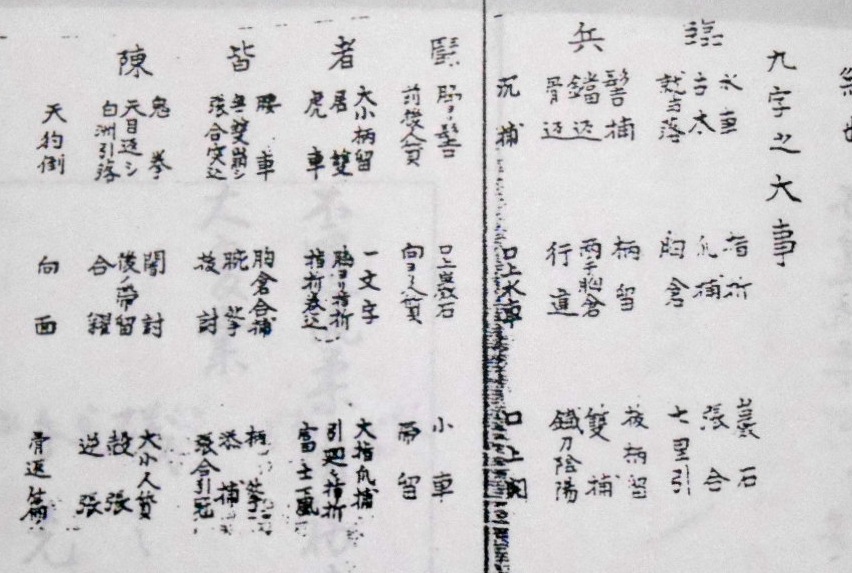 九字之大事
臨
水車 指折 巌石
爪捕 張合
胸倉 七里引
兵
髻捕 柄留 抜柄留
鐺返 両手胸倉 雙捕
骨返 行道 鐡刀陰陽
沉捕 口上水車 口上
闘
脇ヨリ髻 口上巌石 小車
前後人質 向ヨリ人質 帯留
者
大小柄留 一文字 大指爪捕
居雙 脇ヨリ指折 引廻シ指折
虎車 指折巻込 富士颪
皆
腰車 胸倉合捕 柄
無雙崩シ 腕挫 添捕
張合突込 抜討 張合引冠
陳
鬼拳 闇討 大小人質
天目返シ 後ノ帯留 殺張
白洲引落 合 逆張
天狗倒 向面 骨返